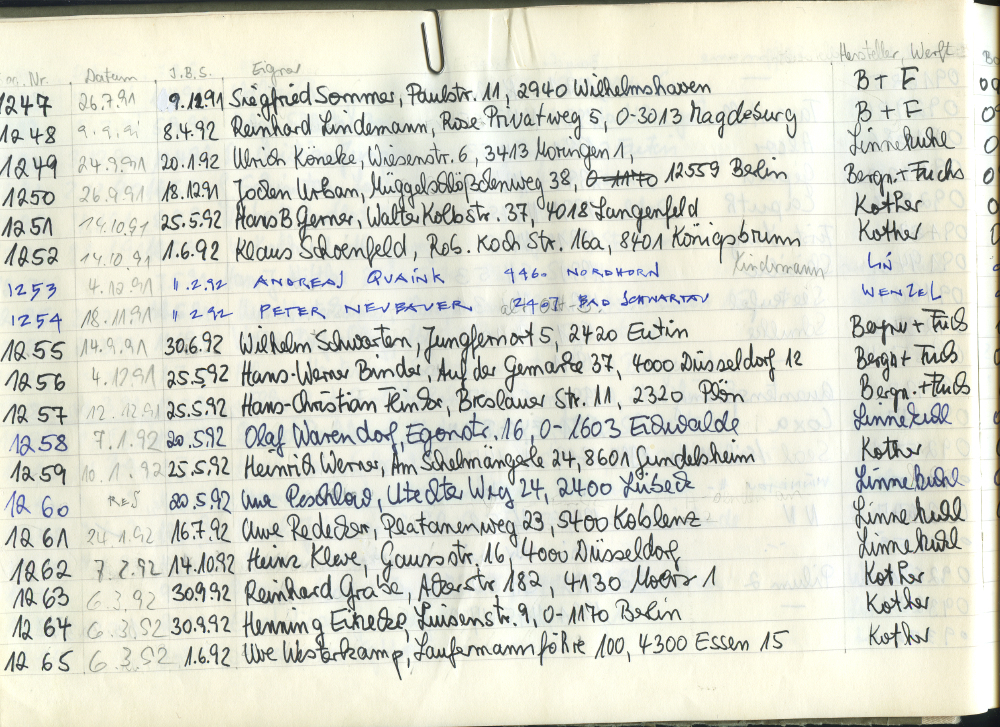 Nr. Datum J.B.S. Eigner Hersteller, Werft
1247 26.7.91 9.12.91 Siegfried Sommer, Paulstr. 11, 2940 Wilhelmshaven B + F
1248 9.9.91 8.4.92 Reinhard Lindemann, Rose Privatweg 5, O-3013 Magdeburg B + F
1249 24.9.91 20.1.92 Ulrich Köneke, Wiesenstr. 6, 3413 Moringen 1, Linnekuhl
1250 26.9.91 18.12.91 Jochen Urban, Müggelschlößchenweg 38, O-1170 12559 Berlin Bergn. + Fuchs
1251 14.10.91 25.5.92 Hans B Gerner, Walter Kolbstr. 37, 4018 Langenfeld Kother
1252 14.10.91 1.6.92 Klaus Schoenfeld, Rob. Koch Str. 16a, 8401 Königsbrunn Kother
1253 4.12.91 11.2.92 ANDREAS QUAINK 4460 NORDHORN Lindemann LIN
1254 18.11.91 11.2.92 PETER NEUBAUER 2407 BAD SCHWARTAU WENZEL
1255 14.9.91 30.6.92 Wilhelm Schwarten, Jungfernort 5, 2420 Eutin Bergn + Fuchs
1256 4.12.91 25.5.92 Hans-Werner Binder, Auf der Gemarke 37, 4000 Düsseldorf 12 Bergn + Fuchs
1257 12.12.91 25.5.92 Hans-Christian Breslauer Str. 11, 2320 Plön Bergn. + Fuchs
1258 7.1.92 20.5.92 Olaf Warendorf, Egonstr. 16, O-1603 Eichwalde Linnekuhl
1259 10.1.92 25.5.92 Heinrich Werner, Am Schelmängerle 24, 8601 Gundelsheim Kother
1260 RES 20.5.92 Uwe Peschlow, Utechter Weg 24, 2400 Lübeck Linnekuhl
1261 24.1.92 16.7.92 Uwe Redecker, Platanenweg 23, 5400 Koblenz Linnekuhl
1262 7.2.92 14.10.92 Heinz Kleve, Gaussstr. 16, 4000 Düsseldorf Linnekuhl
1263 6.3.92 30.9.92 Reinhard Asberstr 182, 4130 Moers 1 Kother
1264 6.3.92 30.9.92 Henning Luisenstr. 9, O-1170 Berlin Kother
1265 6.3.92 1.6.92 Uwe Westerkamp, Laufermannföhre 100, 4300 Essen 15 Kother